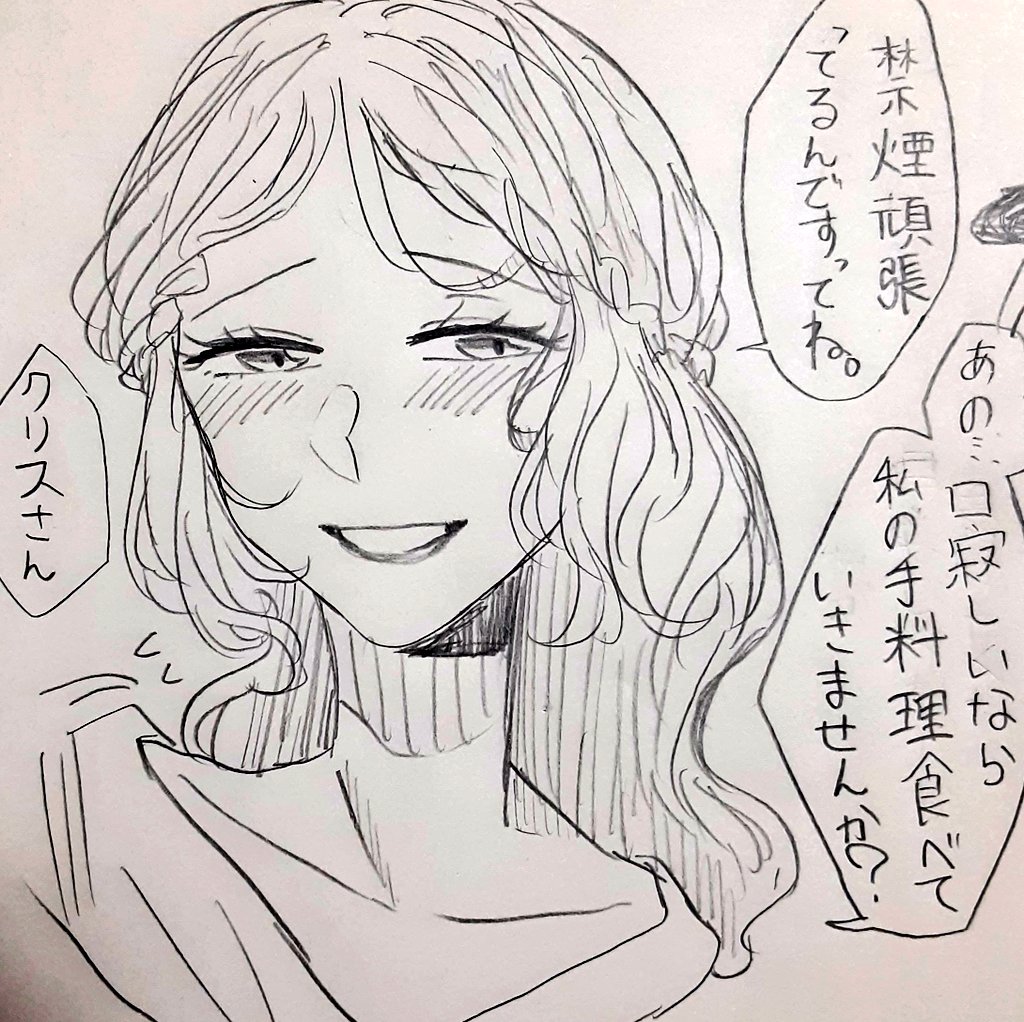 禁煙頑張
ってるんですってね。
あの…口寂しいなら
私の手料理食べて
いきませんか?
クリスさん